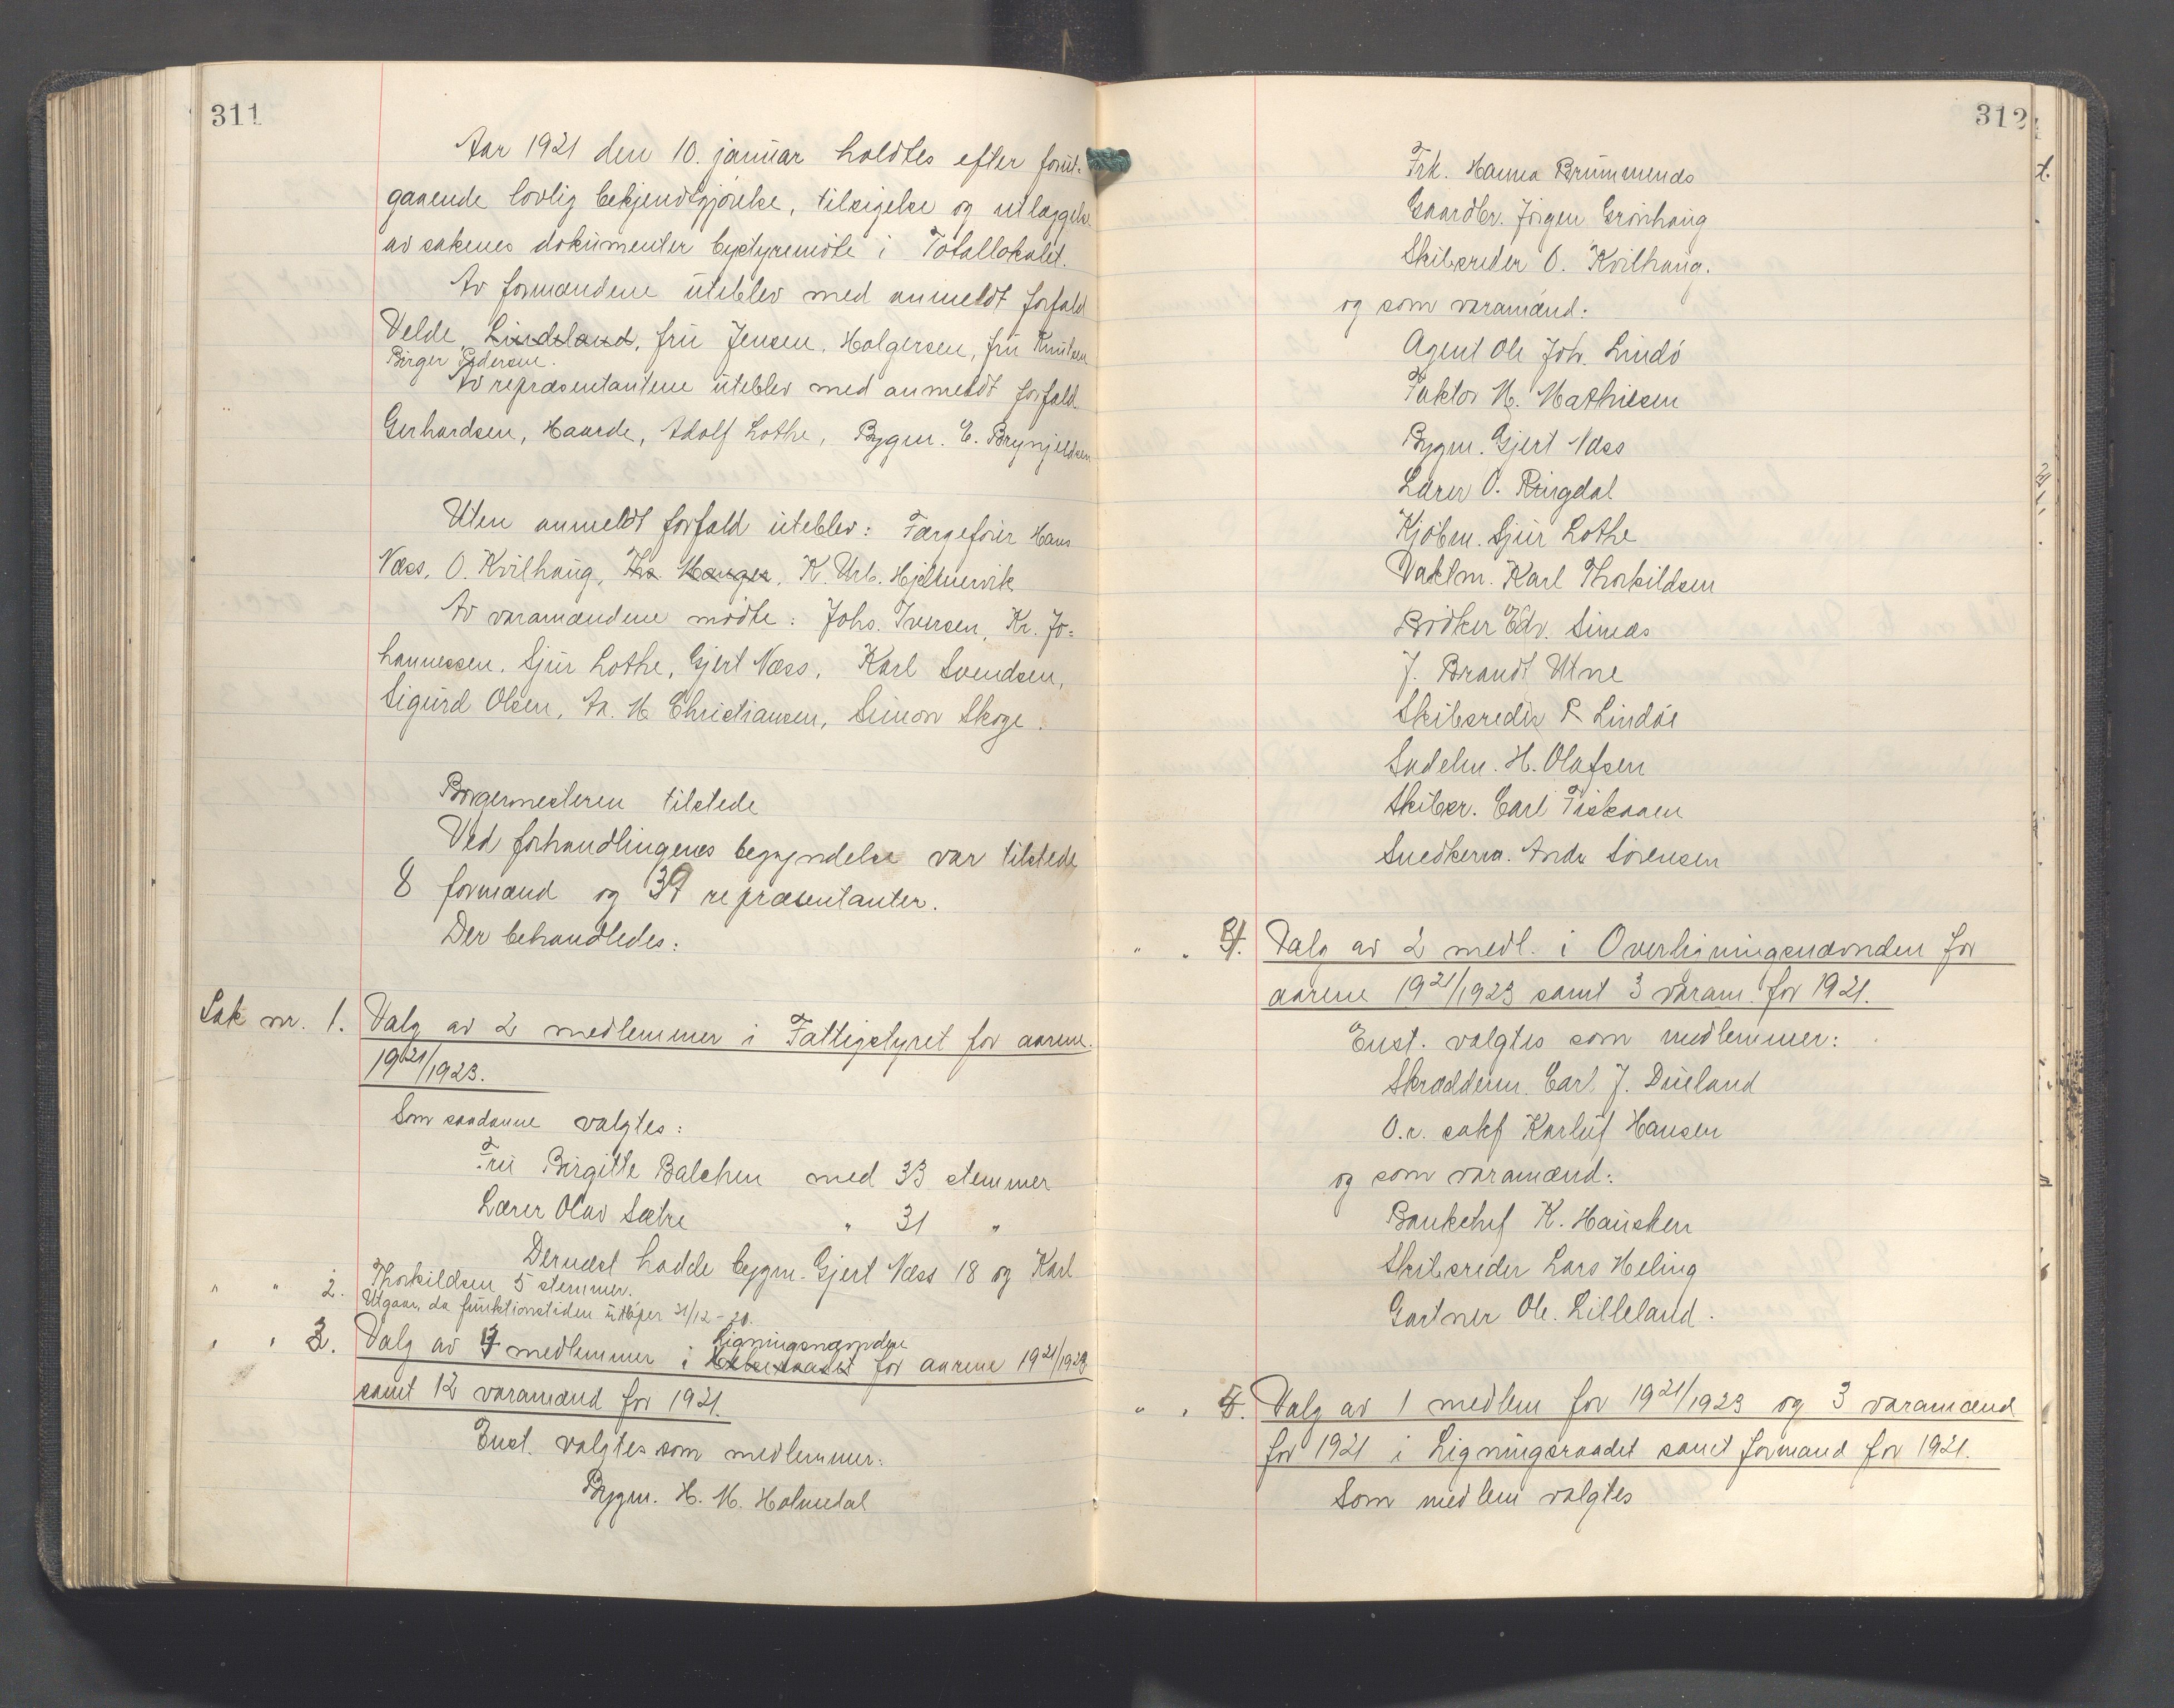 311
Aar 1921 den 10. januar holdtes efter forut-
gaaende lovlig bekjendtgjørelse, tilsigelse og utlæggelse
av sakenes dokumenter bystyremøte i Totallokalet.
Av formændene uteblev med anmeldt forfald
Velde, Lindeland, fru Jensen, Holgersen, fru Knutsen
Birger Pedersen.
Av repræsentantene uteblev med anmeldt forfald
Gerhardsen, Haarde, Adolf Lothe, Bygm. E. Brynjeldsen
Uten anmeldt forfald uteblev: Færgefører Hans
Næss, O. Kvilhaug, Hauger, K. Urb. Hjeltnervik
Av varamændene mødte: Johs. Iversen, Kr. Jo=
hannessen, Sjur Lothe, Gjert Næss, Karl Svendsen,
Sigurd Olsen, An. M. Christiansen, Simon Skoge.
Borgermesteren tilstede
Ved forhandlingenes begyndelse var tilstede
8 formænd og 39 repræsentanter.
Der behandledes:
Sak nr. 1. Valg av 2 medlemmer i Fattigstyret for aarene
1921/1923.
Som saadanne valgtes:
Fru Birgitte Balchen med 33 stemmer
Lærer Olav Sætre " 31 "
Dernæst hadde bygm. Gjert Næss 18 og Karl
Thorkildsen 5 stemmer.
" " 2. Utgaar, da funktionstiden utløper 31/12-20.
" " 3. Valg av medlemmer i Ligningsnævndene for aarene 1921/1923
samt 12 varamænd for 1921.
Enst. valgtes som medlemmer:
Bygm. H. M. Holmedal
312
Frk. Hanna Brummenæs
Gaardbr. Jørgen Grønhaug
Skibsreder O. Kvilhaug.
og som varamænd:
Agent Ole Joh. Lindø
Faktor M. Mathiesen
Bygm. Gjert Næss
Lærer O. Ringdal
Kjøbm. Sjur Lothe
Vaktm. Karl Thorkildsen
Bødker Edv. Simæs
J. Brandt Utne
Skibsreder P. Lindøe
Sadelm. H. Olafsen
Skibsr. Carl Fiskaaen
Snedkerm. Andr. Sørensen
" " 4. Valg av 2 medl. i Overligningsnævnden for
aarene 1921/1923 samt 3 varam. for 1921.
Enst. valgtes som medlemmer:
Skrædderm. Carl J. Dueland
O.r. sakf Karluf Hansen
og som varamænd:
Bankchef K. Hausken
Skibsreder Lars Meling
Gartner Ole Lilleland.
" " 5. Valg av 1 medlem for 1921/1923 og 3 varamænd
for 1921 i Ligningsraadet samt formand for 1921.
Som medlem valgtes